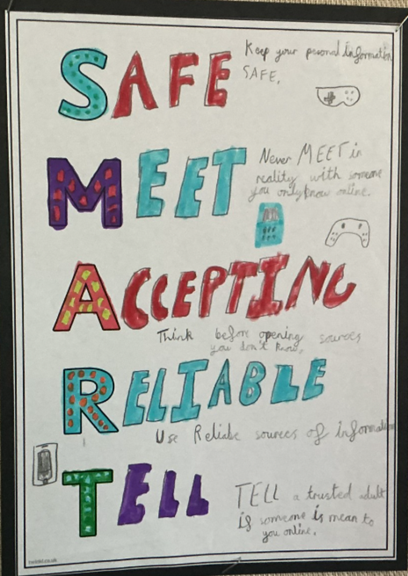 SAFE
Keep your personal information
SAFE.
MEET
Never MEET in
reality with someone
you only know online.
ACCEPTING
Think before opening sources
you don't know.
RELIABLE
Use Reliable sources of information
TELL
TELL a trusted adult
if someone is mean to
you online.
twinkl.co.uk